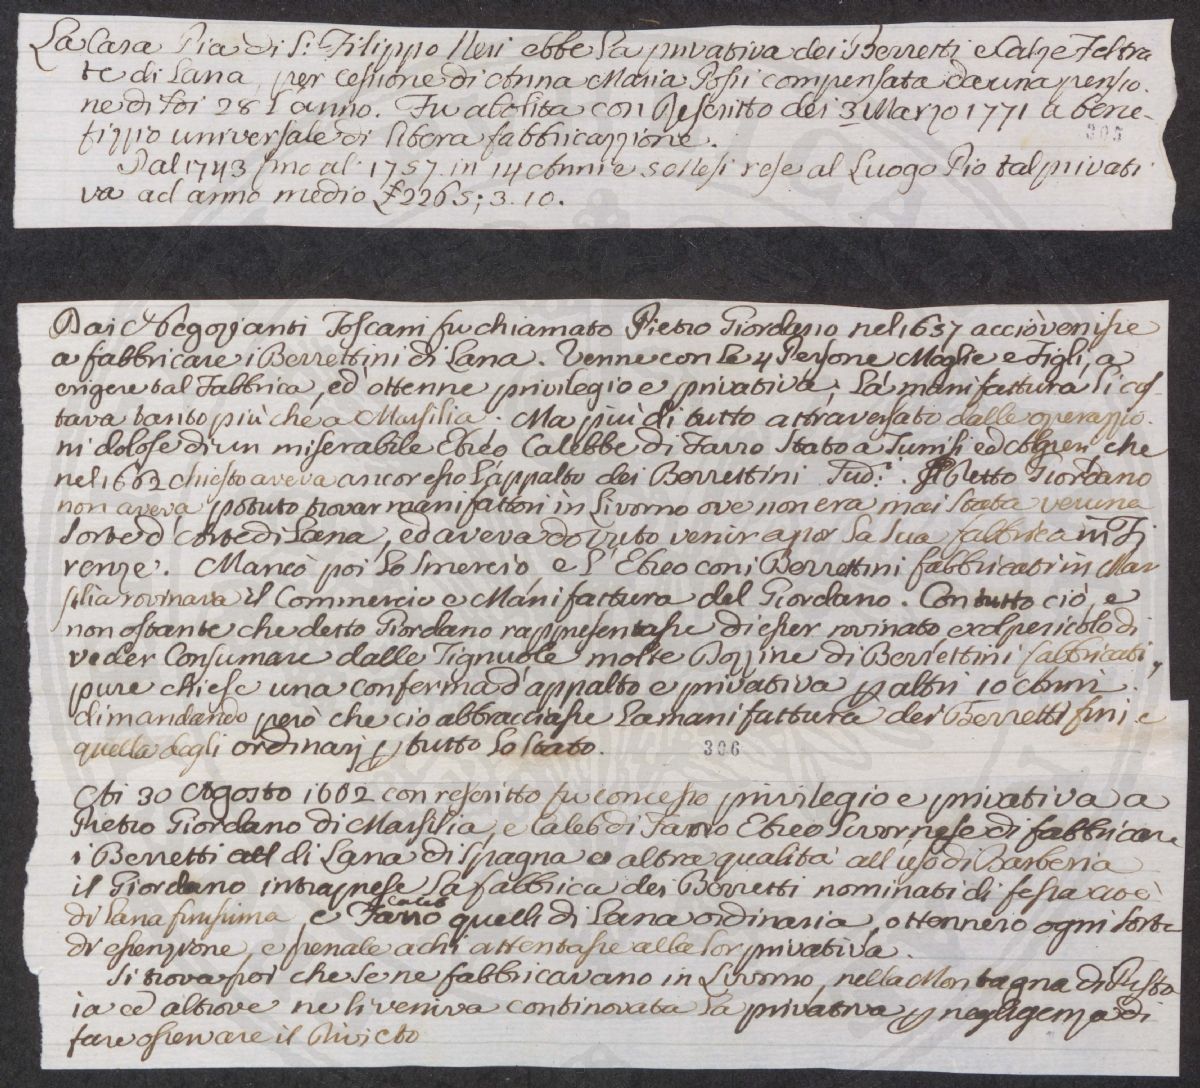 La Casa Pia di S: Filippo Neri ebbe la privativa dei Berretti e Calze Feltra
te di Lana, per cessione di Anna Maria Possi compensata da una pensio-
ne di soi 28 l'anno. Fu abolita con Rescritto dei 3 Marzo 1771 a bene-
fizzio universale di libera fabbricazzione.
305
Dal 1743 fino al 1757. in 14 Anni e 5 Mesi rese al Luogo Pio tal privati
va ad anno medio £2265; 3. 10.
Dai Negozianti Toscani fu chiamato Pietro Giordano nel 1657 acciò venisse
a fabbricare i Berrettini di Lana. Venne con le 4 Persone Moglie e Figli, a
erigere tal Fabbrica, ed ottenne privilegio e privativa; La manifattura li cos-
tava tanto più che a Marsilia. Ma più di tutto attraversato dalle operazio-
ni dolose di un miserabile Ebreo Calebbe di Farro Stato a Tunisi ed Algieri, che
nel 1662 chiesto aveva ancor esso l'appalto dei Berrettini Jud:. Il Detto Giordano
non aveva potuto trovar manifattori in Livorno ove non era mai stata veruna
sorte d'Arte di Lana, ed aveva dovuto venir a por la sua fabbrica in Fi
renze. Mancò poi lo smercio e l'Ebreo con i Berrettini fabbricati in Mar
silia rovinava il Commercio e Manifattura del Giordano. Con tutto ciò, e
non ostante che detto Giordano rappresentasse di esser rovinato e col pericolo di
veder Consumare dalle Tignuole molte Dozzine di Berrettini fabbricati,
pure chiese una conferma d'appalto e privativa p altri 10 Anni.
dimandando però che cio abbracciasse la manifattura dei Berretti fini e
quella degli ordinarj p tutto lo stato.
306
Ai 30 Agosto 1662 con rescritto fu concesso privilegio e privativa a
Pietro Giordano di Marsilia, e Caleb di Farro Ebreo Livornese di fabbricare
i Berretti di Lana di Spagna e altra qualità all'uso di Barberia
il Giordano intraprese la fabbrica dei Berretti nominati di fessa cioè
di Lana finissima e Caleb Farro quelli di Lana ordinaria, ottennero ogni sorte
di esenzione, e penale a chi attentasse alla lor privativa.
Si trova poi che se ne fabbricavano in Livorno, nella Montagna di Pisto
ia ed altrove ne li veniva continovata la privativa p negligenza di
fare osservare il Divieto